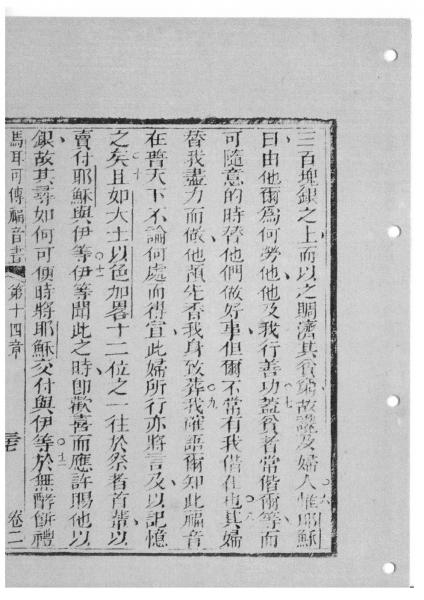 三百塊銀之上而以之賙濟其貧窮故及婦人○六惟耶穌
曰由他爾爲何勞他他及我行善功○七蓋貧者常偕爾等而
可隨意的時替他們做好事但爾不常有我偕住也○八其婦
替我盡力而做他預先香我身致葬○九我確語爾知此福音
在普天下不論何處而得宣此婦所行亦將言及以記憶
之矣○十且如大士以色加畧十二位之一往於祭者首輩以
賣付耶穌與伊等○十一伊等聞此之時卽歡喜而應許賜他以
銀故其尋如何可便時將耶穌交付與伊等○十二於無酵餅禮
馬耳可傳福音書 第十四章 卷二